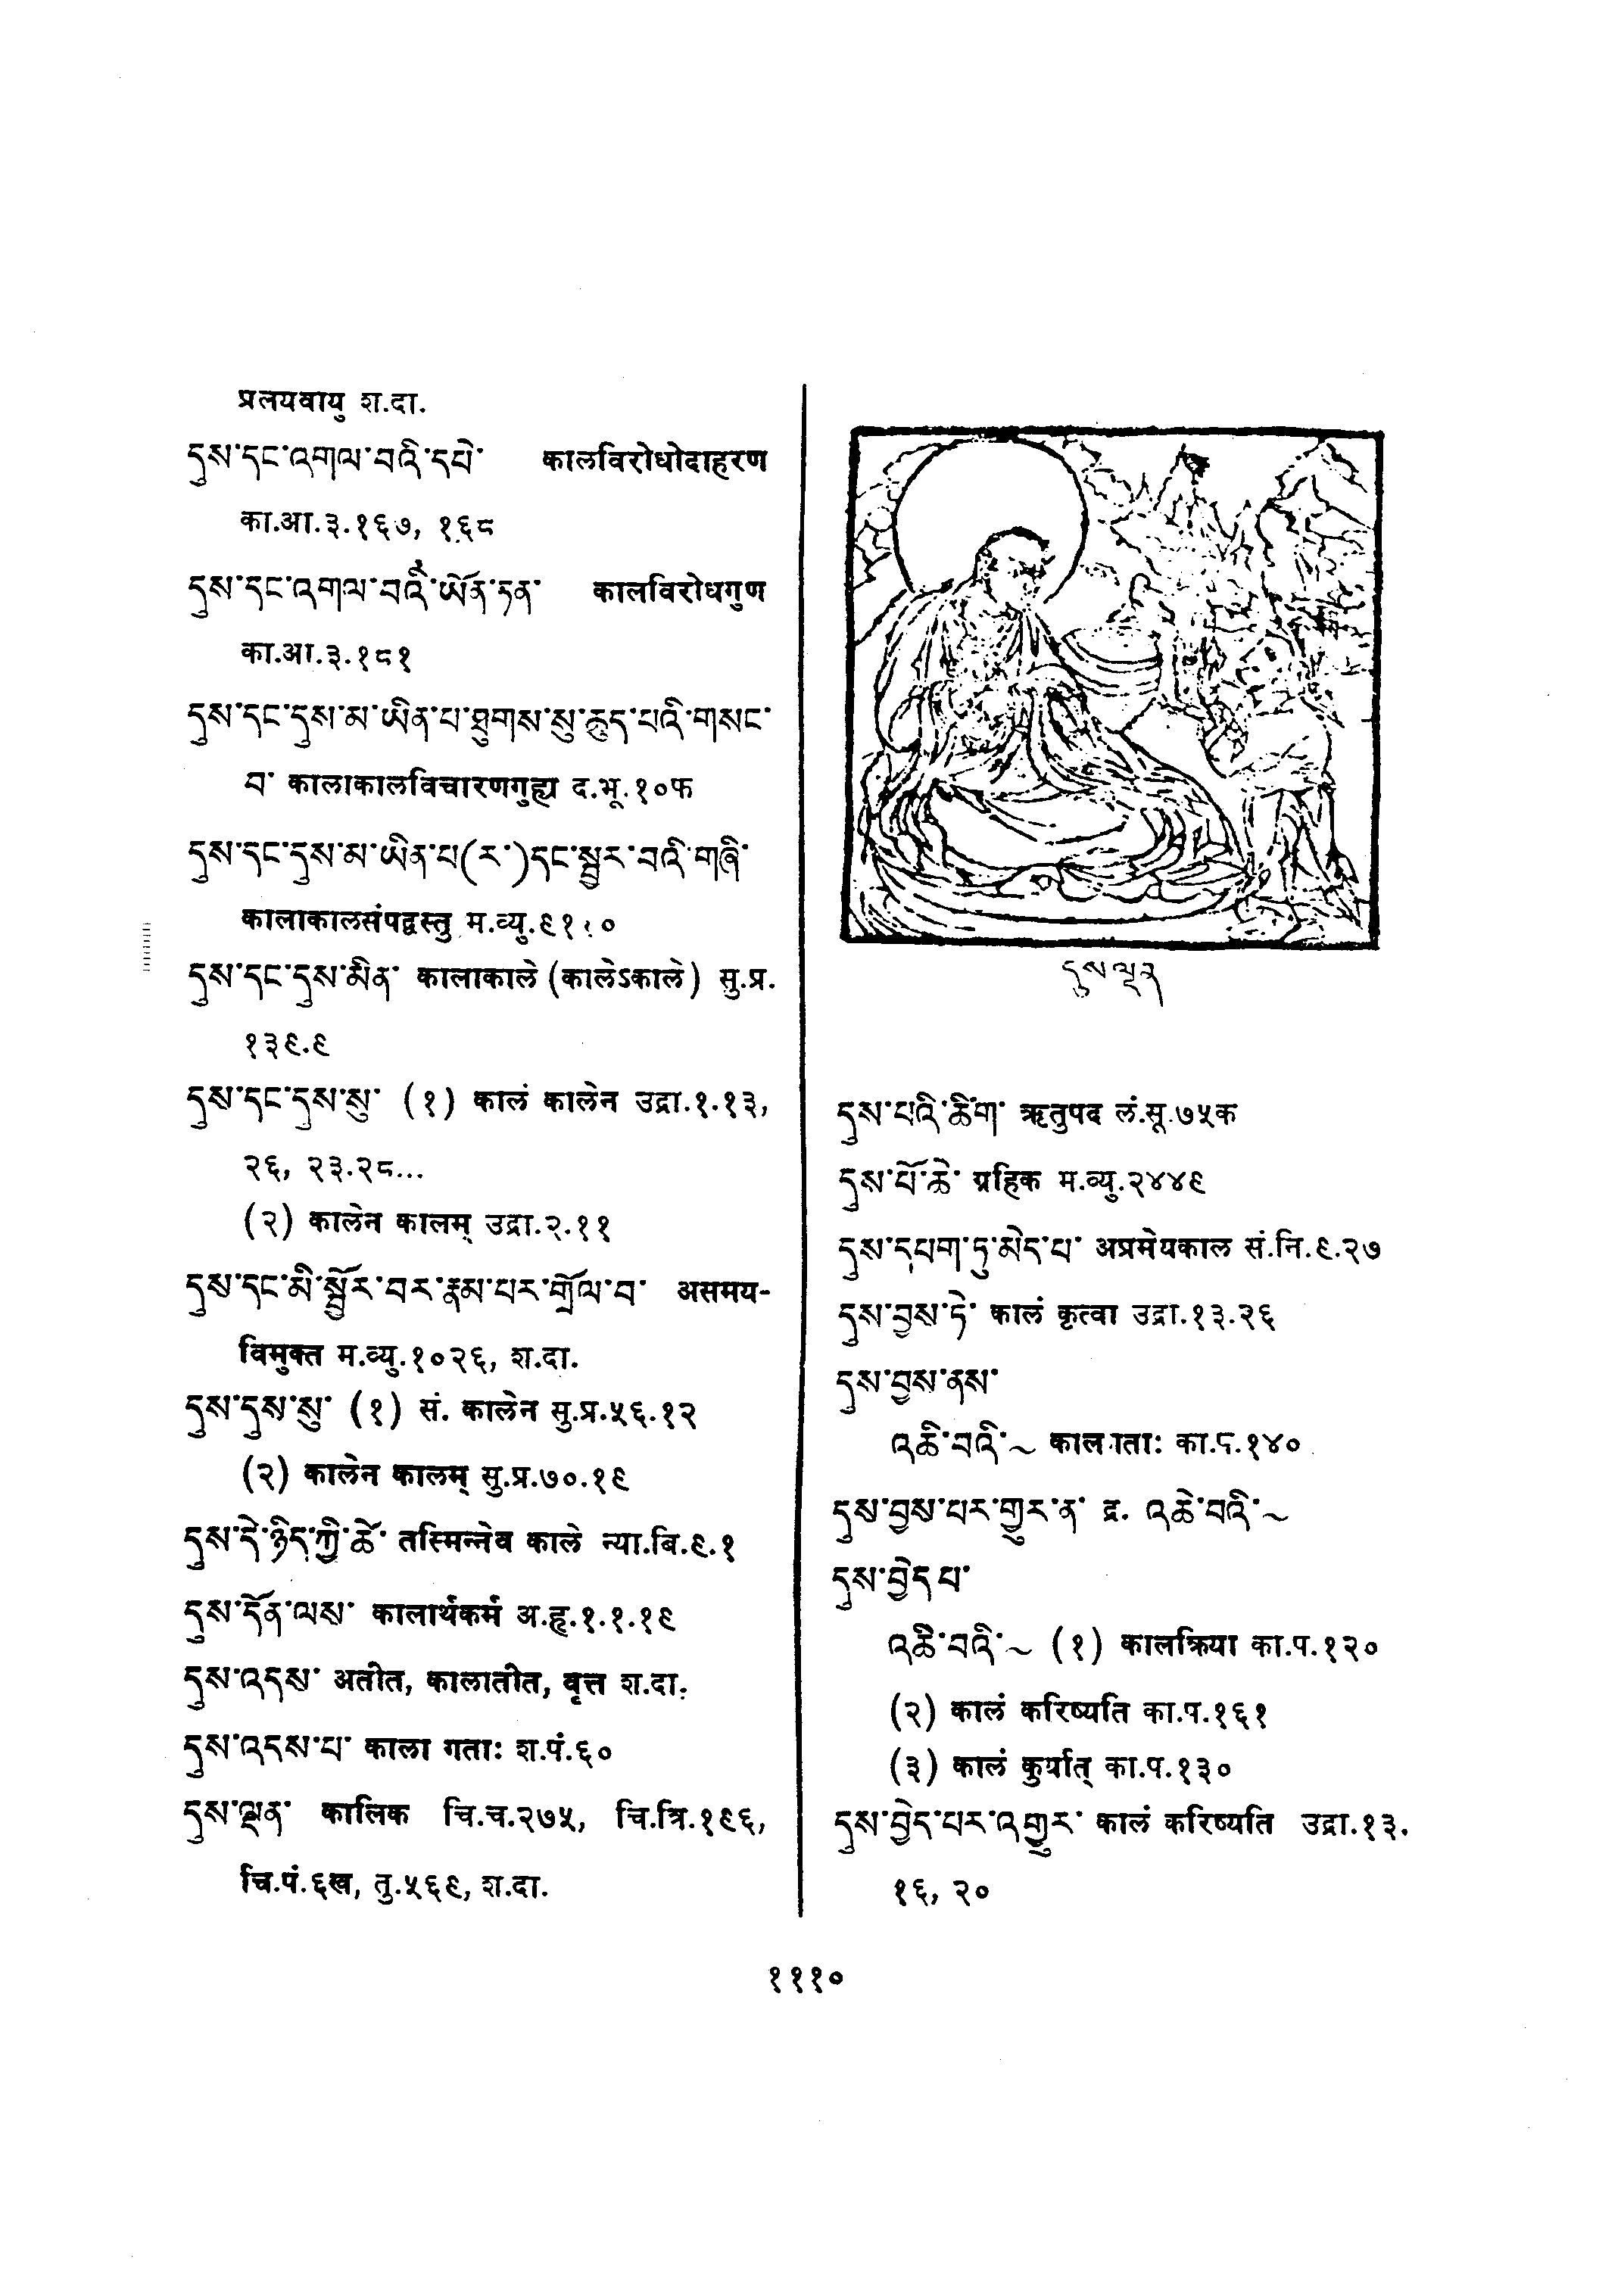 प्रलयवायु श.दा.
དུས་དང་འགལ་བའི་དཔེ་ कालविरोधोदाहरण
का.आ.३.१६७, १६८
དུས་དང་འགལ་བའི་ཡོན་ཏན་ कालविरोधगुण
का.आ.३.१८१
དུས་དང་དུས་མ་ཡིན་པ་ཐུགས་སུ་ཆུད་པའི་གསང་
བ་ कालाकालविचारणगुह्य द.भू.१०फ
དུས་དང་དུས་མ་ཡིན་པ(ར་)དང་སྦྱར་བའི་གཞི་
कालाकालसंपद्वस्तु म.व्यु.
དུས་དང་དུས་མིན་ कालाकाले (कालेऽकाले) सु.प्र.
१३९.९
དུས་དང་དུས་སུ་ (१) कालं कालेन उद्रा.१.१३,
२६, २३.२८...
(२) कालेन कालम् उद्रा.२.११
དུས་དང་མི་སྦྱོར་བར་རྣམ་པར་གྲོལ་བ་ असमय-
विमुक्त म.व्यु.१०२६, श.दा.
དུས་དུས་སུ་ (१) सं. कालेन सु.प्र.५६.१२
(२) कालेन कालम् सु.प्र.७०.१९
དུས་དེ་ཉིད་ཀྱི་ཚེ་ तस्मिन्नेव काले न्या.बि.९.१
དུས་དོན་ལས་ कालार्थकर्म अ.हृ.१.१.१९
དུས་འདས་ अतीत, कालातीत, वृत्त श.दा.
དུས་འདས་པ་ काला गताः श.पं.६०
དུས་ལྡན་ कालिक चि.च.२७५, चि.त्रि.१९६,
चि.पं.६ख, तु.५६९, श.दा.
དུས་ལྡན
དུས་པའི་ཚིག་ ऋतुपद लं.सू.७५क
དུས་པོ་ཆེ་ ग्रहिक म.व्यु.२४४९
དུས་དཔག་ཏུ་མེད་པ་ अप्रमेयकाल सं.नि.९.२७
དུས་བྱས་ཏེ་ कालं कृत्वा उद्रा.१३.२६
དུས་བྱས་ནས་
འཆི་བའི་~ का.८.१४०
དུས་བྱས་པར་གྱུར་ན་ द्र. འཆེ་བའི་~
དུས་བྱེད་པ་
འཆི་བའི་~ (१) कालक्रिया का.प.१२०
(२) कालं करिष्यति का.प.१६१
(३) कालं कुर्यात् का.प.१३०
དུས་བྱེད་པར་འགྱུར་ कालं करिष्यति उद्रा.१३.
१६, २०
१११०